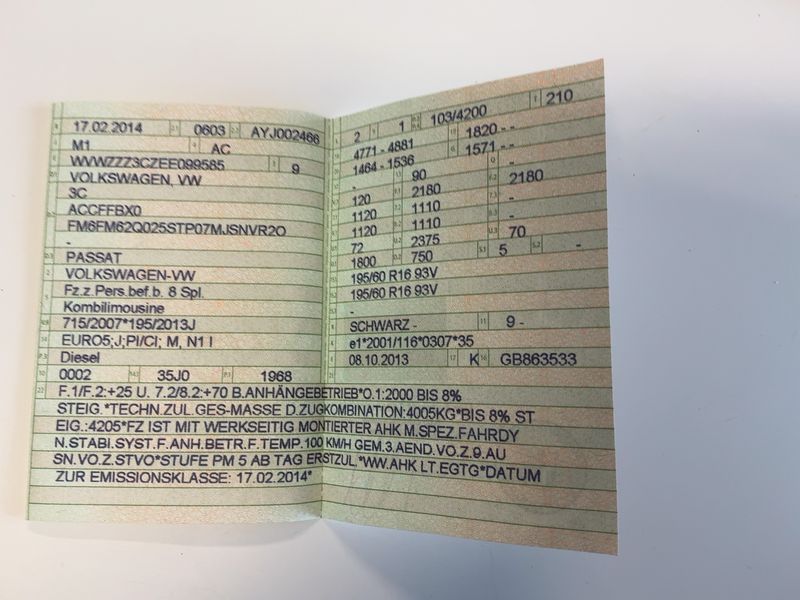 17.02.2014 0603 AYJ002466
M1 AC
WVWZZZ3CZEE099585 9
VOLKSWAGEN, VW
3C
ACCFFBX0
FM6FM62Q025STP07MJSNVR2O
-
PASSAT
VOLKSWAGEN-VW
Fz.z.Pers.bef.b. 8 Spl.
Kombilimousine
715/2007*195/2013J
EURO5;J;PI/CI; M, N1 I
Diesel
0002 35J0 1968
2 1 103/4200 210
4771 - 4881 1820 - -
1464 - 1536 1571 - -
- 90 -
120 2180 2180
1120 1110 -
1120 1110 -
72 2375 70
1800 750 5 -
195/60 R16 93V
195/60 R16 93V
-
SCHWARZ - 9 -
e1*2001/116*0307*35
08.10.2013 K GB863533
F.1/F.2:+25 U. 7.2/8.2:+70 B.ANHÄNGEBETRIEB*O.1:2000 BIS 8%
STEIG.*TECHN.ZUL.GES-MASSE D.ZUGKOMBINATION:4005KG*BIS 8% ST
EIG.:4205*FZ IST MIT WERKSEITIG MONTIERTER AHK M.SPEZ.FAHRDY
N.STABI.SYST.F.ANH.BETR.F.TEMP.100 KM/H GEM.3.AEND.VO.Z.9.AU
SN.VO.Z.STVO*STUFE PM 5 AB TAG ERSTZUL.*WW.AHK LT.EGTG*DATUM
ZUR EMISSIONSKLASSE: 17.02.2014*